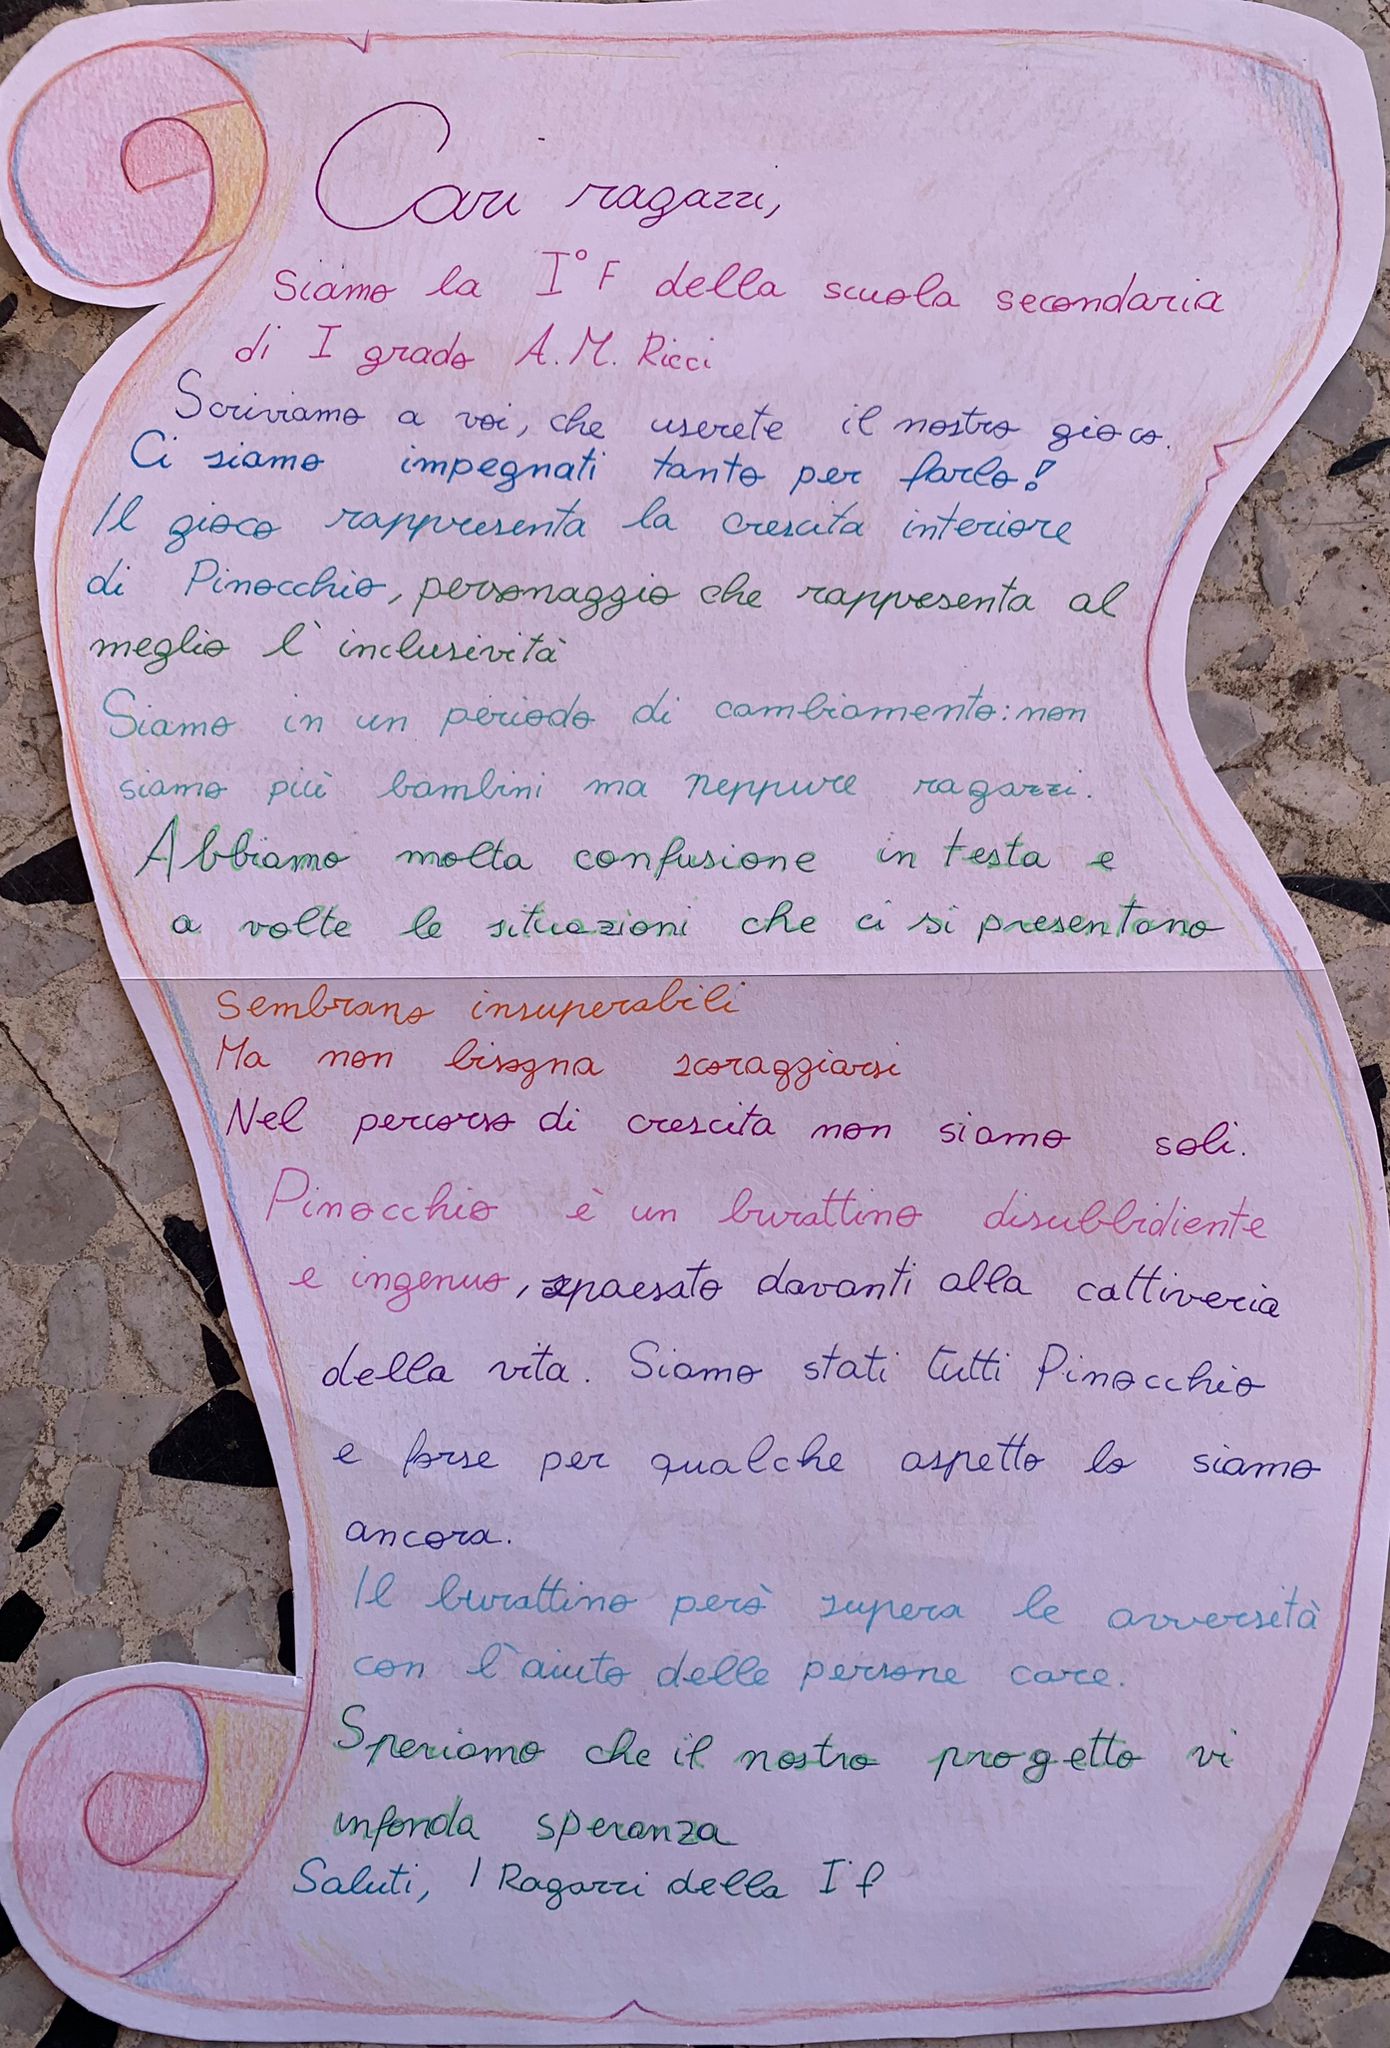 Cari ragazzi,
Siamo la I° F della scuola secondaria
di I grado A.M. Ricci
Scriviamo a voi, che userete il nostro gioco.
Ci siamo impegnati tanto per farlo!
Il gioco rappresenta la crescita interiore
di Pinocchio, personaggio che rappresenta al
meglio l'inclusività
Siamo in un periodo di cambiamento: non
siamo più bambini ma neppure ragazzi.
Abbiamo molta confusione in testa e
a volte le situazioni che ci si presentano
sembrano insuperabili
Ma non bisogna scoraggiarsi
Nel percorso di crescita non siamo soli.
Pinocchio è un burattino disubbidiente
e ingenuo, spaesato davanti alla cattiveria
della vita. Siamo stati tutti Pinocchio
e forse per qualche aspetto lo siamo
ancora.
Il burattino però supera le avversità
con l'aiuto delle persone care.
Speriamo che il nostro progetto vi
infonda speranza
Saluti, I Ragazzi della I° f